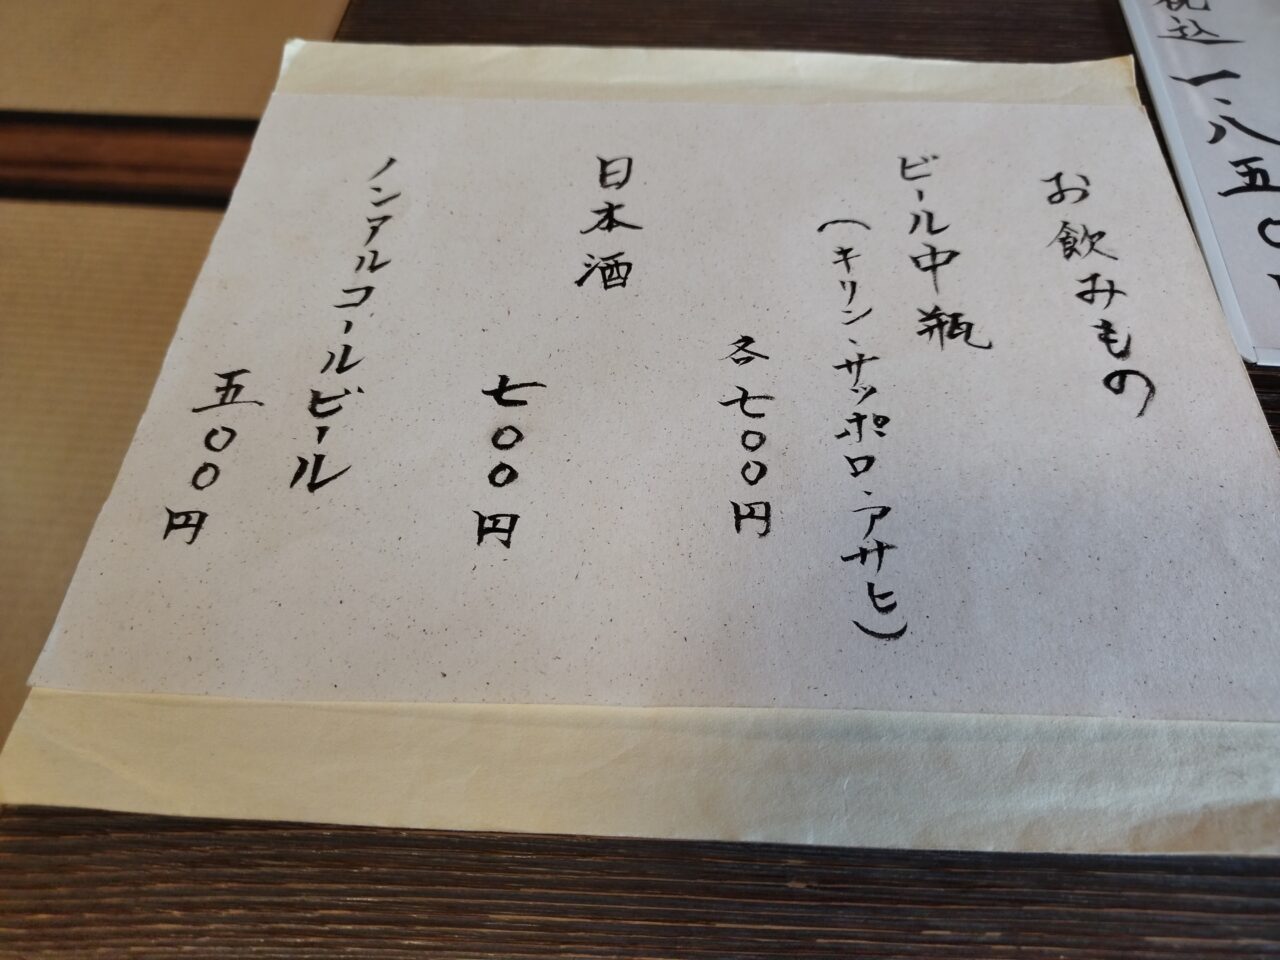 お飲みもの
ビール中瓶
(キリン、サッポロ、アサヒ)
各七〇〇円
日本酒
七〇〇円
ノンアルコールビール
五〇〇円
税込一、八五〇